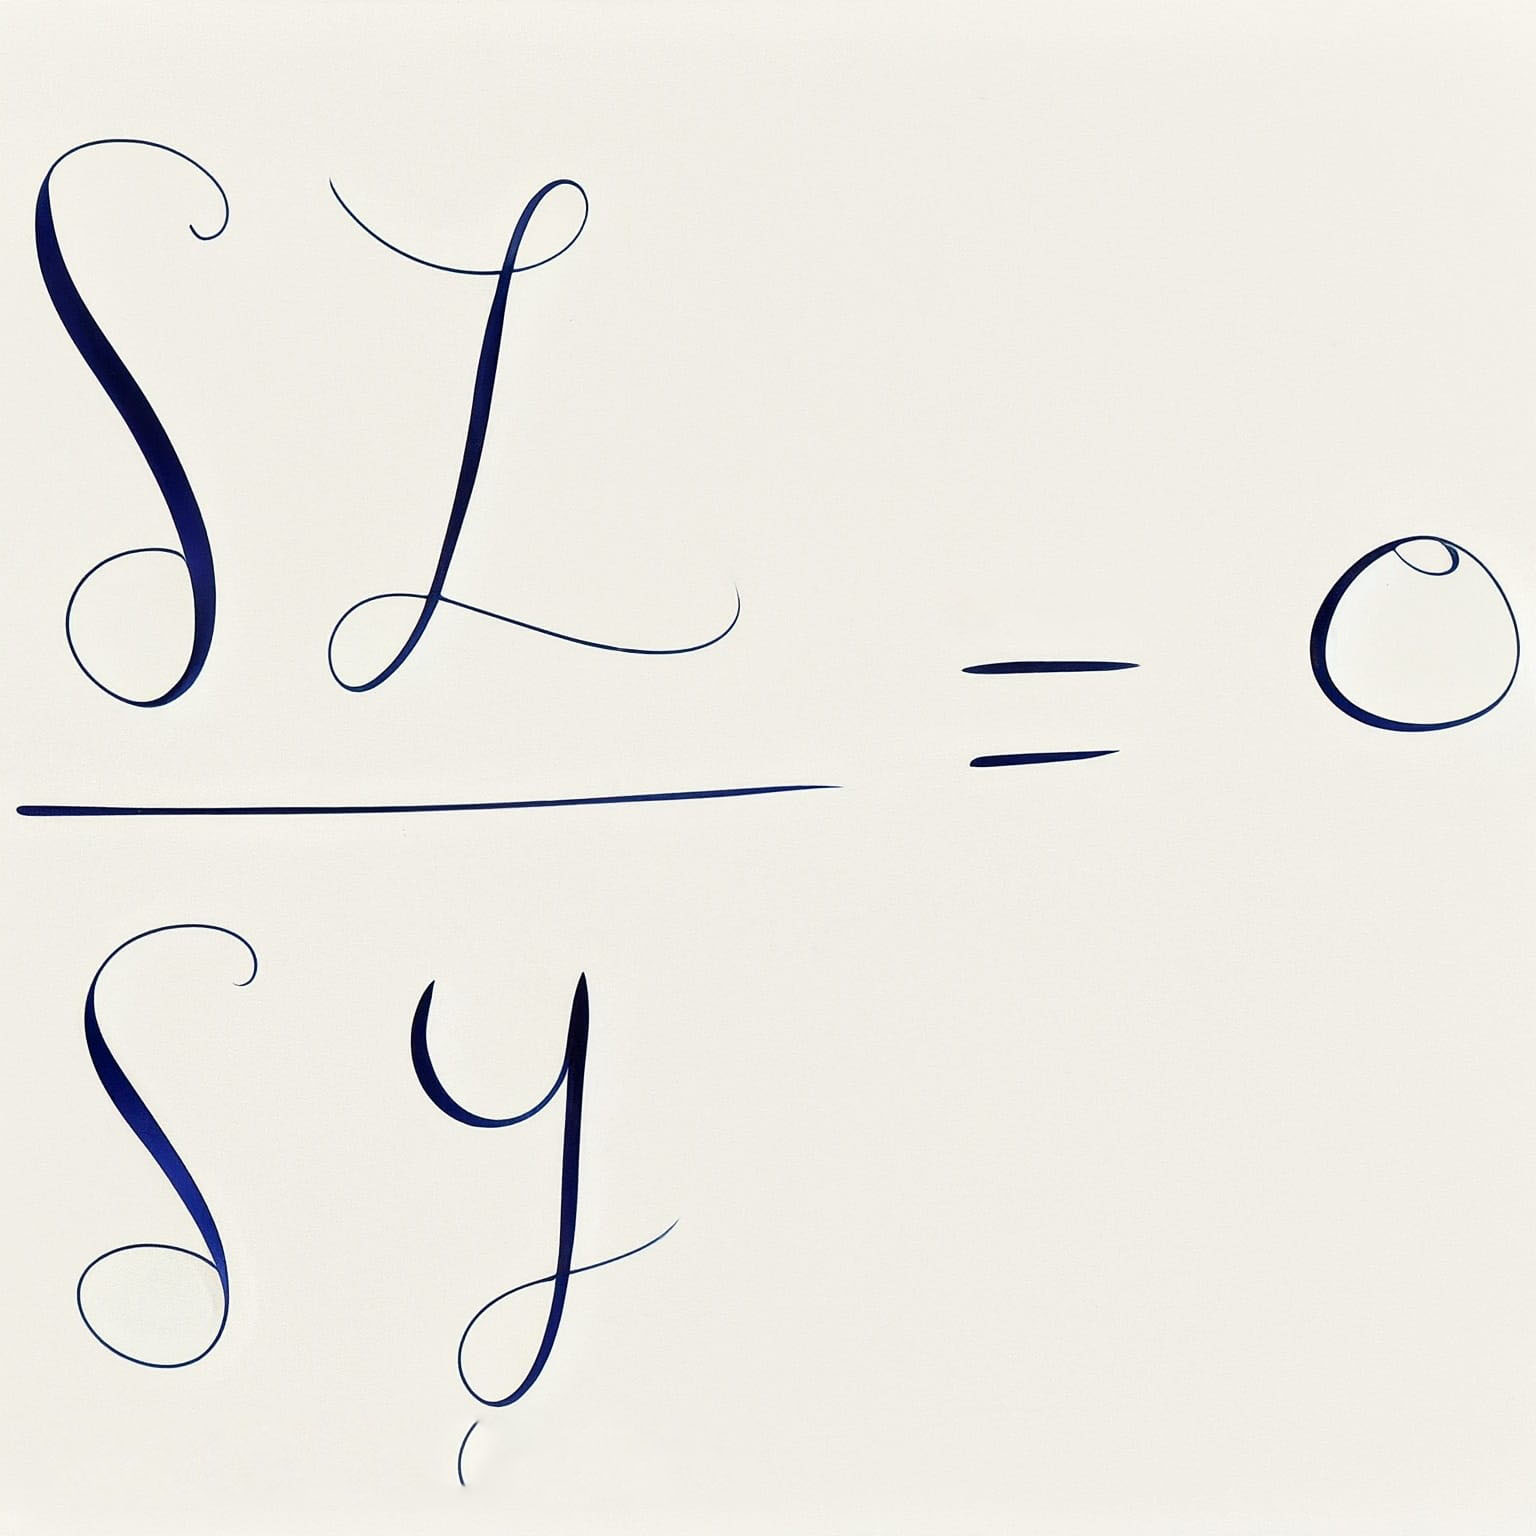 δL
δy = 0